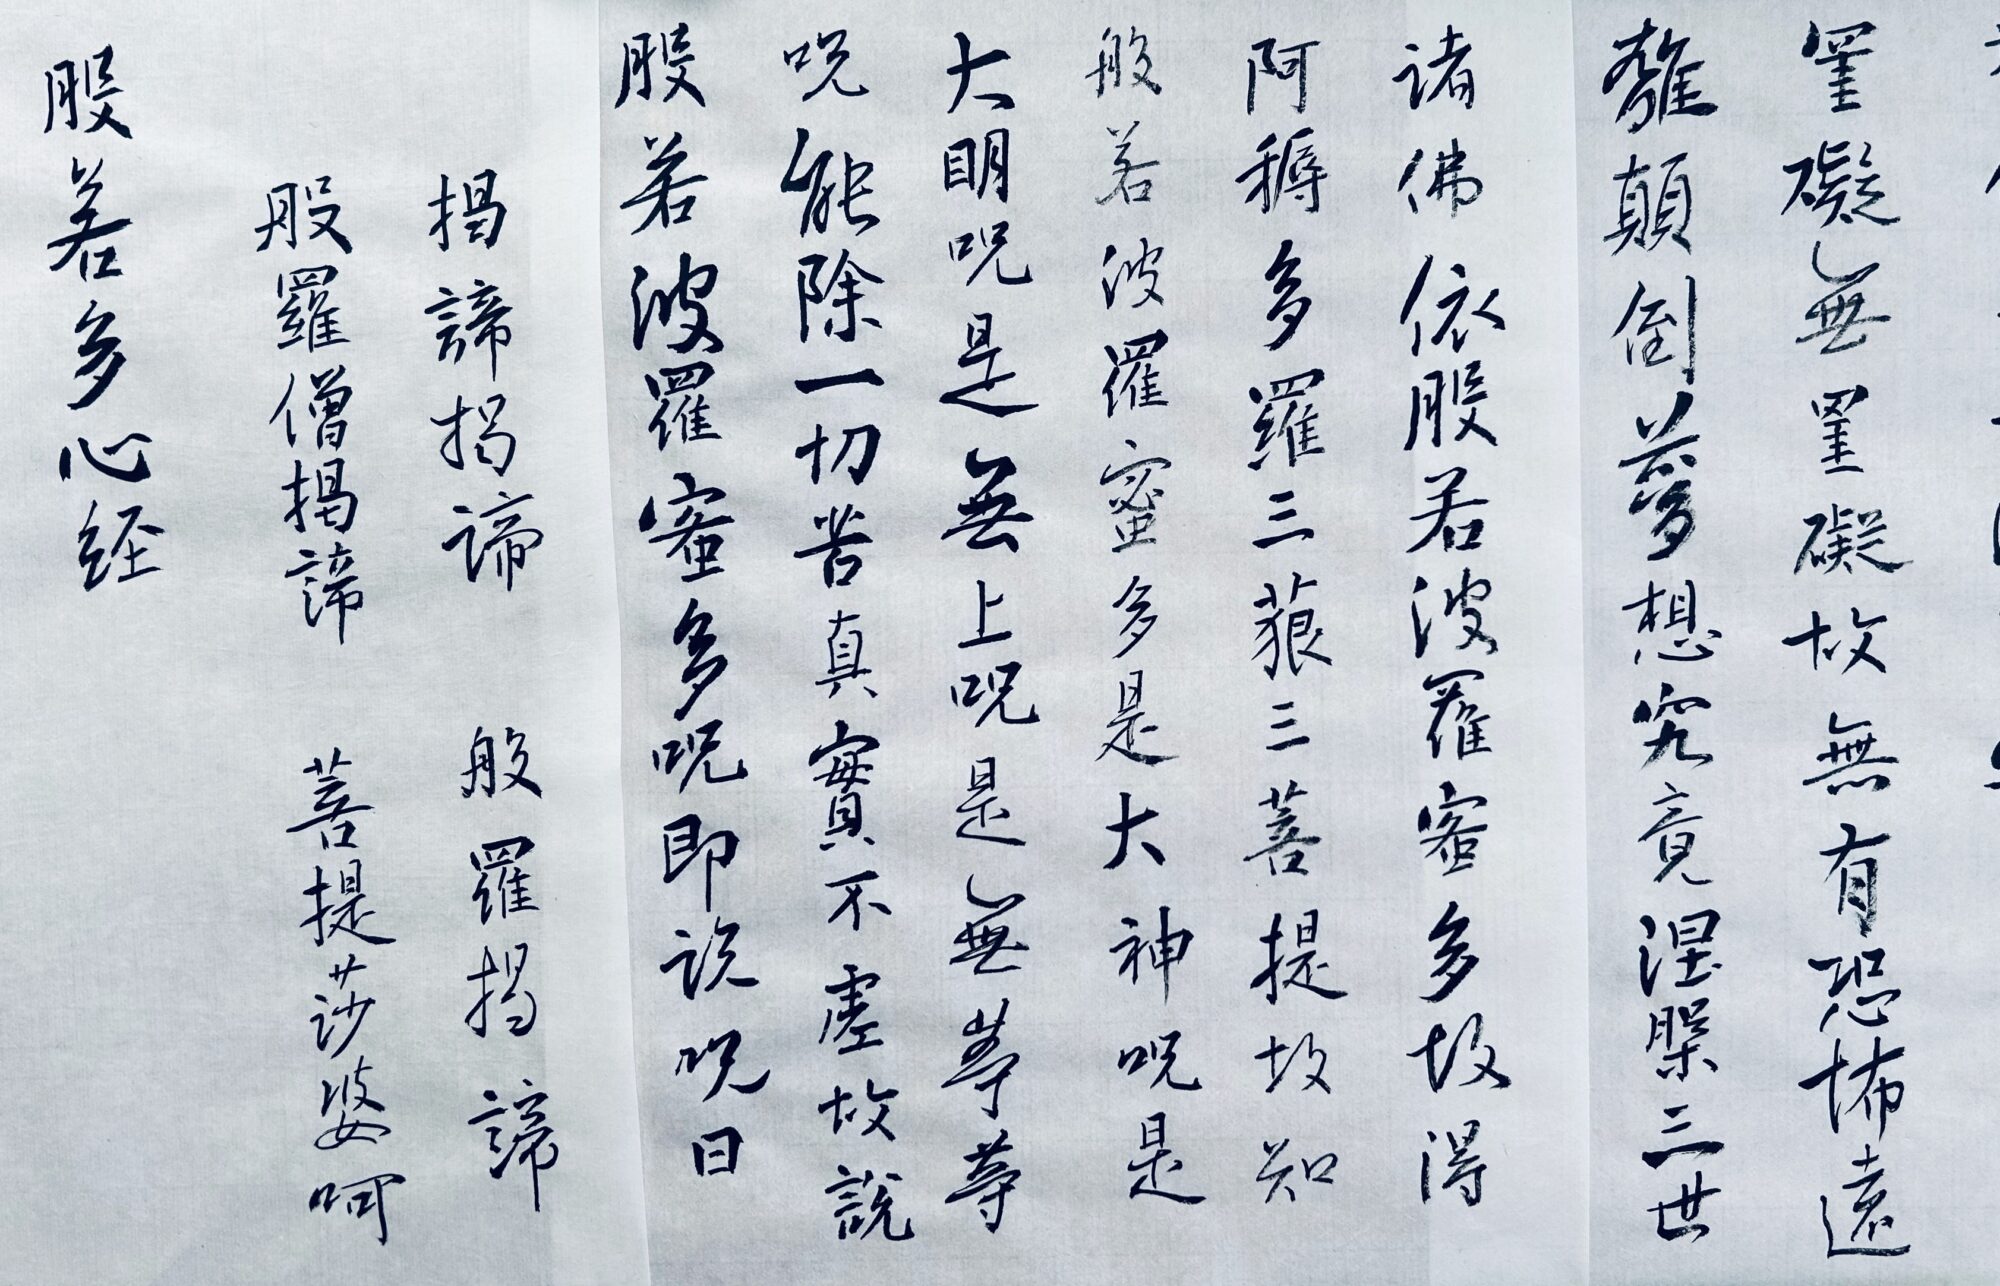 罣礙無罣礙故無有恐怖遠
離顛倒夢想究竟涅槃三世
諸佛依般若波羅蜜多故得
阿耨多羅三藐三菩提故知
般若波羅蜜多是大神呪是
大明呪是無上呪是無等等
呪能除一切苦真實不虛故說
般若波羅蜜多呪即説呪曰
揭諦揭諦 般羅揭諦
般羅僧揭諦 菩提莎婆呵
般若多心経